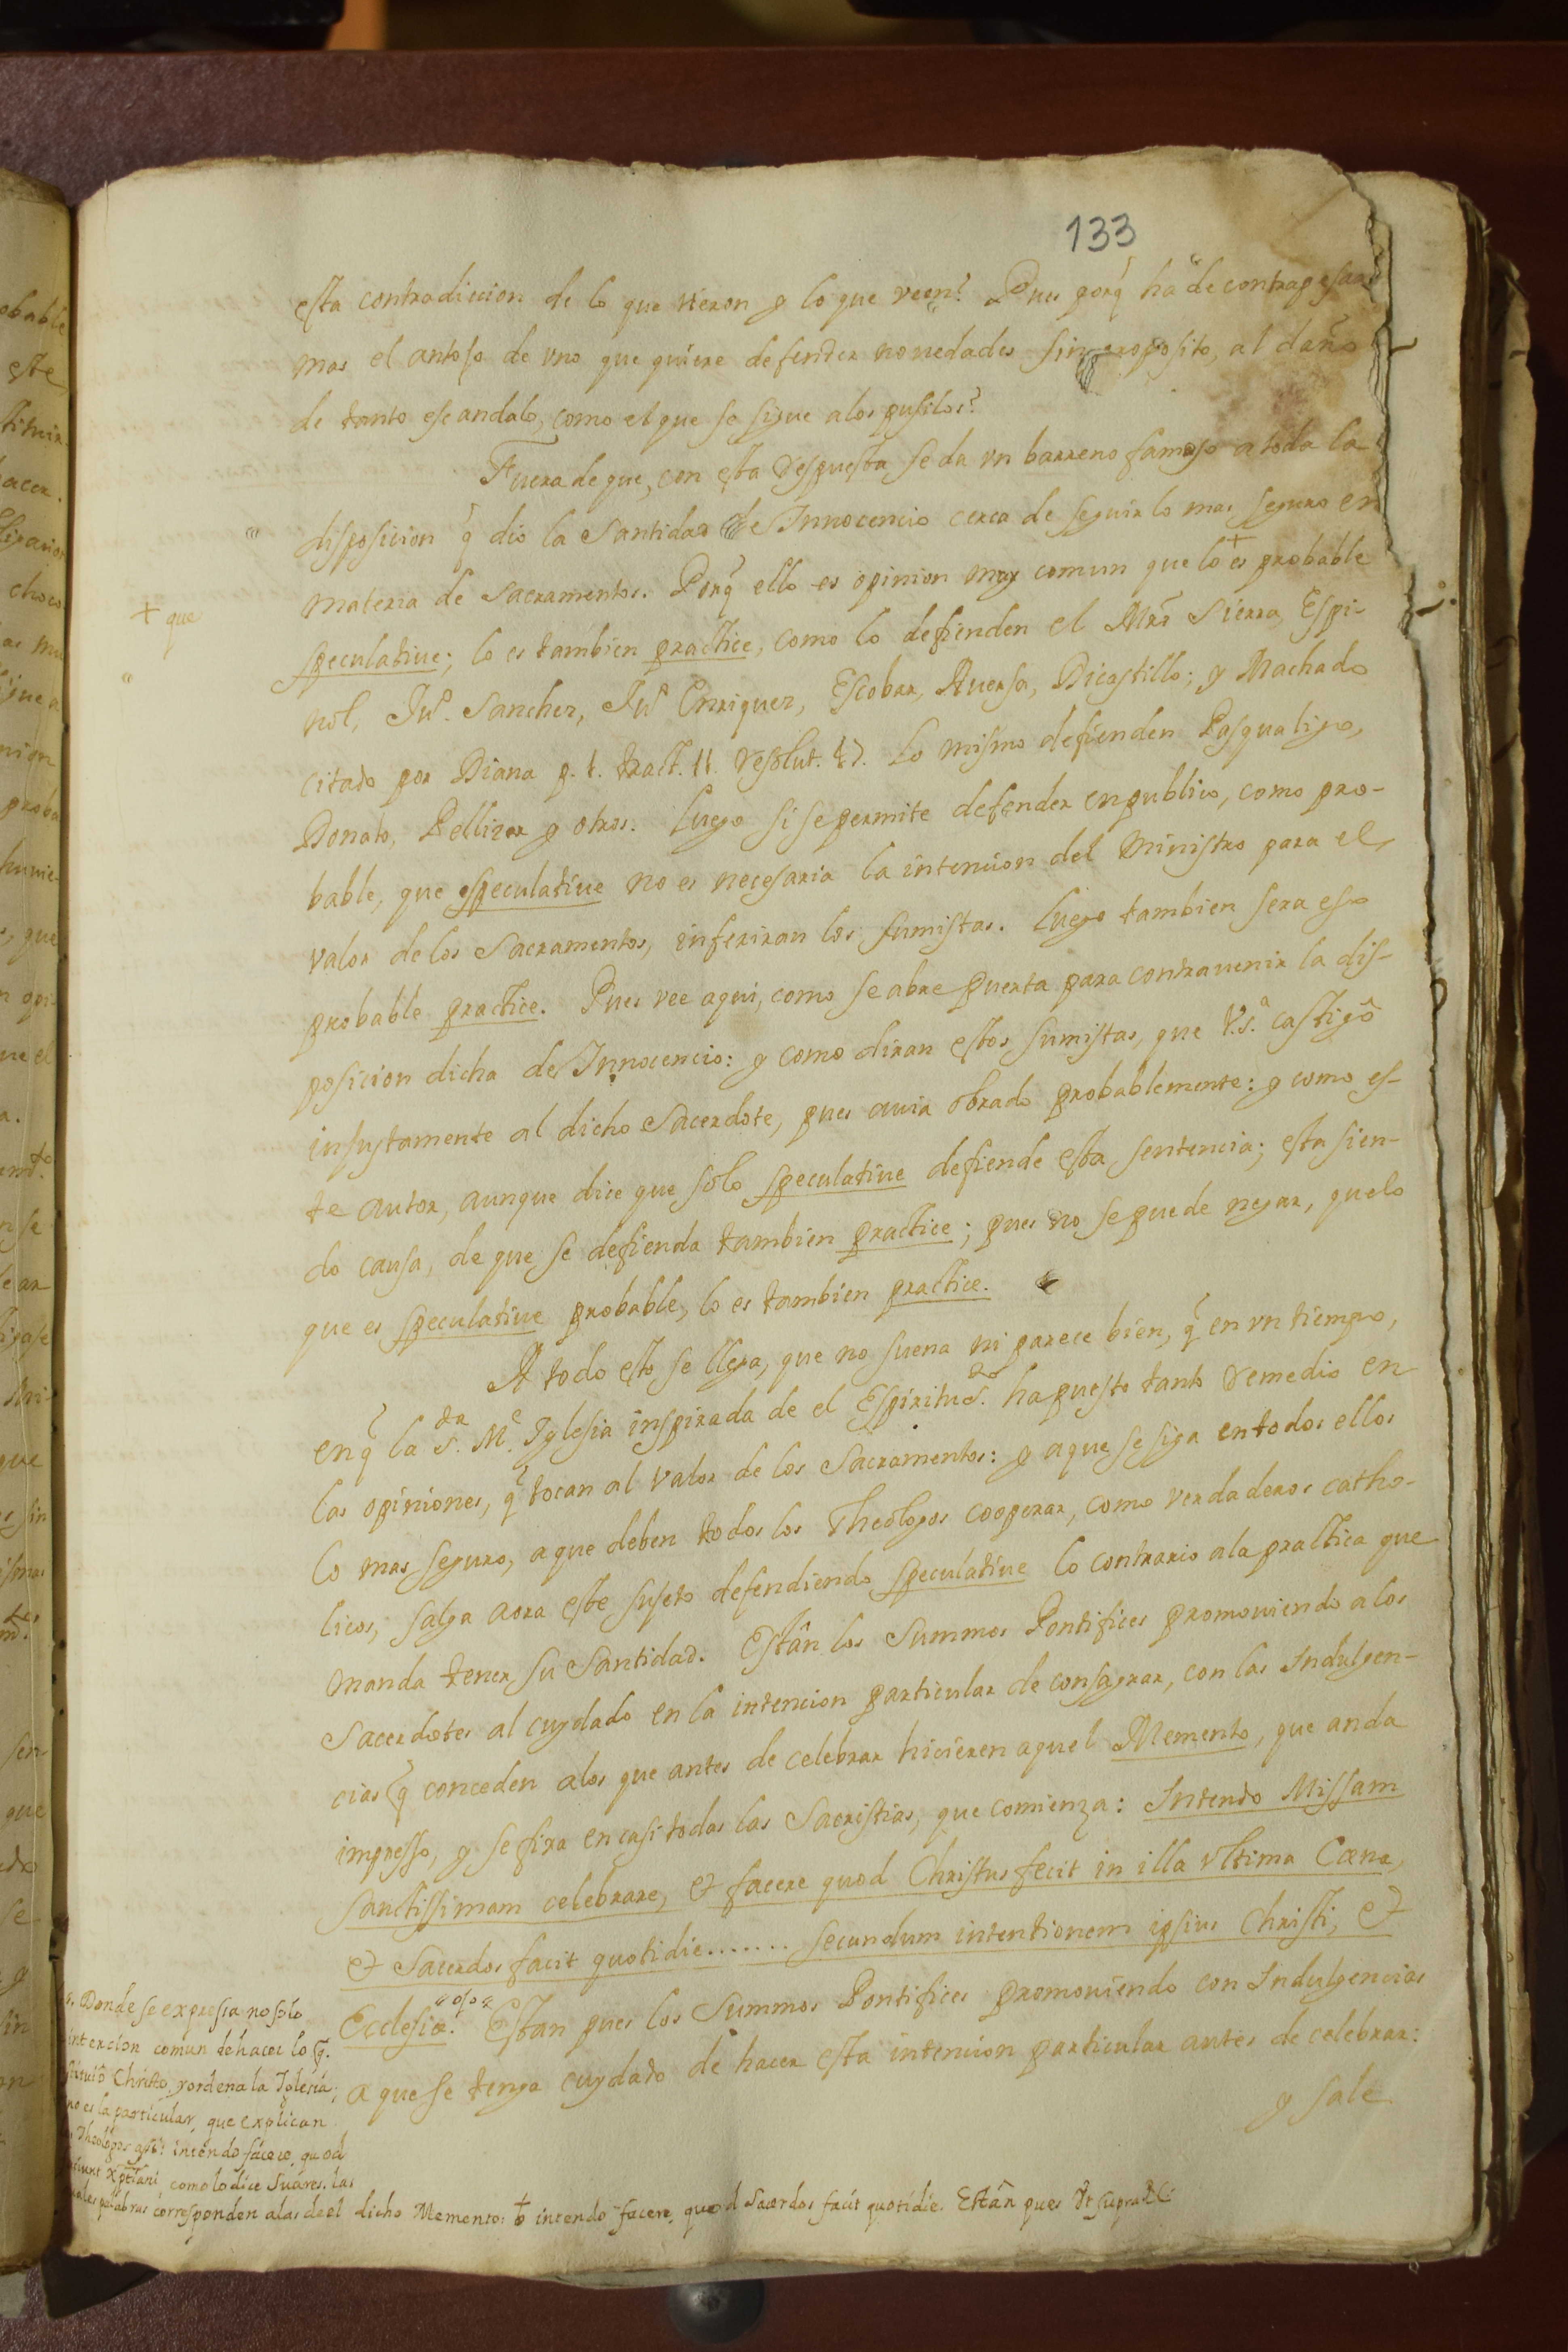 133
esta contradiccion de lo que vieron y lo que veen? Pues porq̃ ha de contrapesar
mas el antojo de vno que quiere defender novedades sin proposito, al daño
de tanto escandalo, como el que se sigue alos pusilos?
Fuera de que, con esta respuesta se da vn barreno famoso a toda la
disposicion q̃ dio la Santidad de Innocencio cerca de seguir lo mas seguro en
materia de Sacramentos. Porq̃ ello es opinion muy comun que lo + es probable
+ que
speculatiue; lo es tambien practice, como lo defienden el Mro Sierra, Espi-
nol, Juo. Sanchez, Juo Enriquez, Escobar, Auersa, Dicastillo; y Machado
citado por Diana p. 1. tract. 11. resolut. 17. Lo mismo defienden Pasqualigo,
Donato, Pellizar y otros. Luego si se permite defender en publico, como pro-
bable, que especulatiue no es necesaria la intencion del Ministro para el
valor de los Sacramentos, inferiran los sumistas. Luego tambien sera eso
probable practice. Pues vee aqui, como se abre puerta para contravenir la dis-
posicion dicha de Innocencio: y como diran estos sumistas, que V.S.a castigò
injustamente al dicho Sacerdote, pues auia obrado probablemente: y como es-
te autor, aunque dice que solo speculatiue defiende esta sentencia; esta sien-
do causa, de que se defienda tambien practice; pues no se puede negar, que lo
que es speculatiue probable, lo es tambien practice.
A todo esto se llega, que no suena ni parece bien, q̃ en vn tiempo,
en q̃ la S.ta M.e Iglesia inspirada de el Espiritu S.to ha puesto tanto remedio en
las opiniones, q̃ tocan al valor de los Sacramentos: y a que se siga en todos ellos
lo mas seguro, a que deben todos los Theologos cooperar, como verdaderos catho-
licos, salga aora este sujeto defendiendo speculatiue lo contrario ala practica que
manda tener su Santidad. Estàn los Summos Pontifices promouiendo a los
Sacerdotes al cuydado en la intencion particular de consagrar, con las Indulgen-
cias q̃ conceden alos que antes de celebrar hicieren aquel Memento, que anda
impresso, y se fixa en casi todas las Sacristias, que comienza: Intendo Missam
sanctissimam celebrare, et facere quod Christus fecit in illa vltima Cœna,
et Sacerdos facit quotidie....... secundum intentionem ipsius Christi, et
Ecclesiæ. Estan pues los Summos Pontifices promoviendo con Indulgencias
a que se tenga cuydado de hacer esta intencion particular antes de celebrar:
y sale
Donde se expressa no solo
intencion comun de hacer lo q̃
Christo, y ordena la Iglesia;
no es la particular, que explican
Theologos asi: intendo facere, quod
xp̃tiani, como lo dice Suárez. las
palabras corresponden alas de el dicho Memento: intendo facere, quod Sacerdos facit quotidie. Estàn pues vt supra